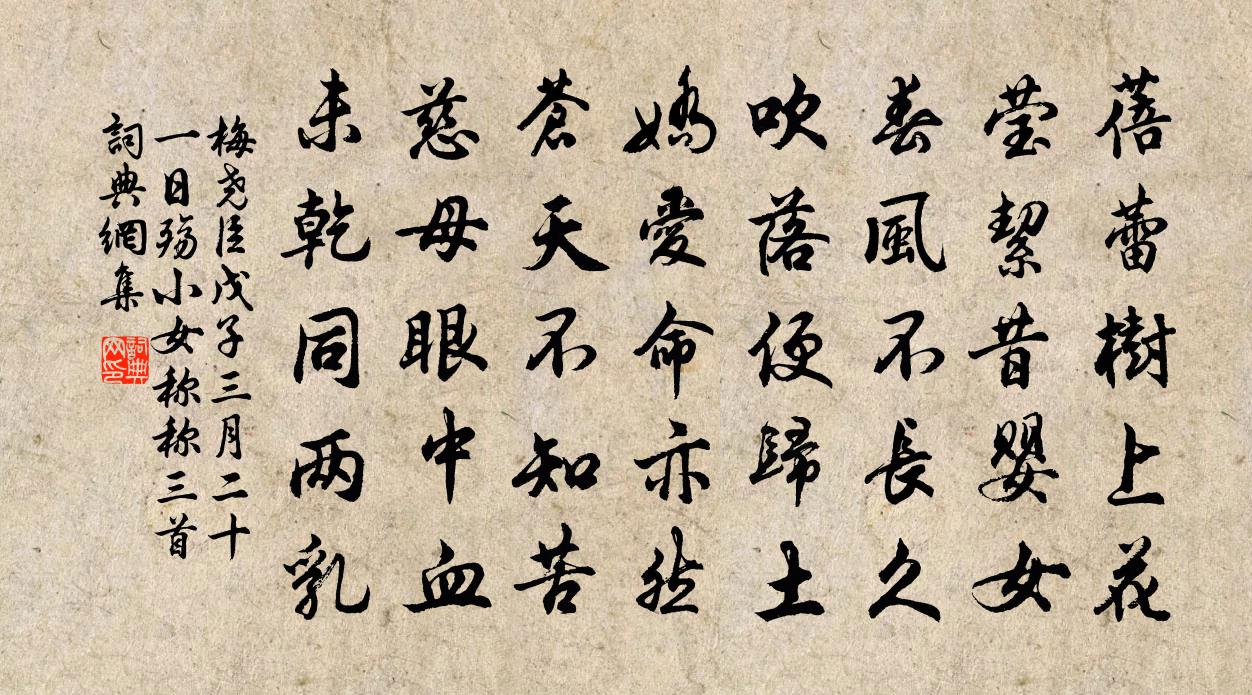 蓓蕾樹上花
莹絜昔婴女
春風不長久
吹落便歸土
嬌愛命亦然
蒼天不知苦
慈母眼中血
未乾同两乳
梅尧臣戊子三月二十
一日殇小女称称三首
詞典網集
詞典网印